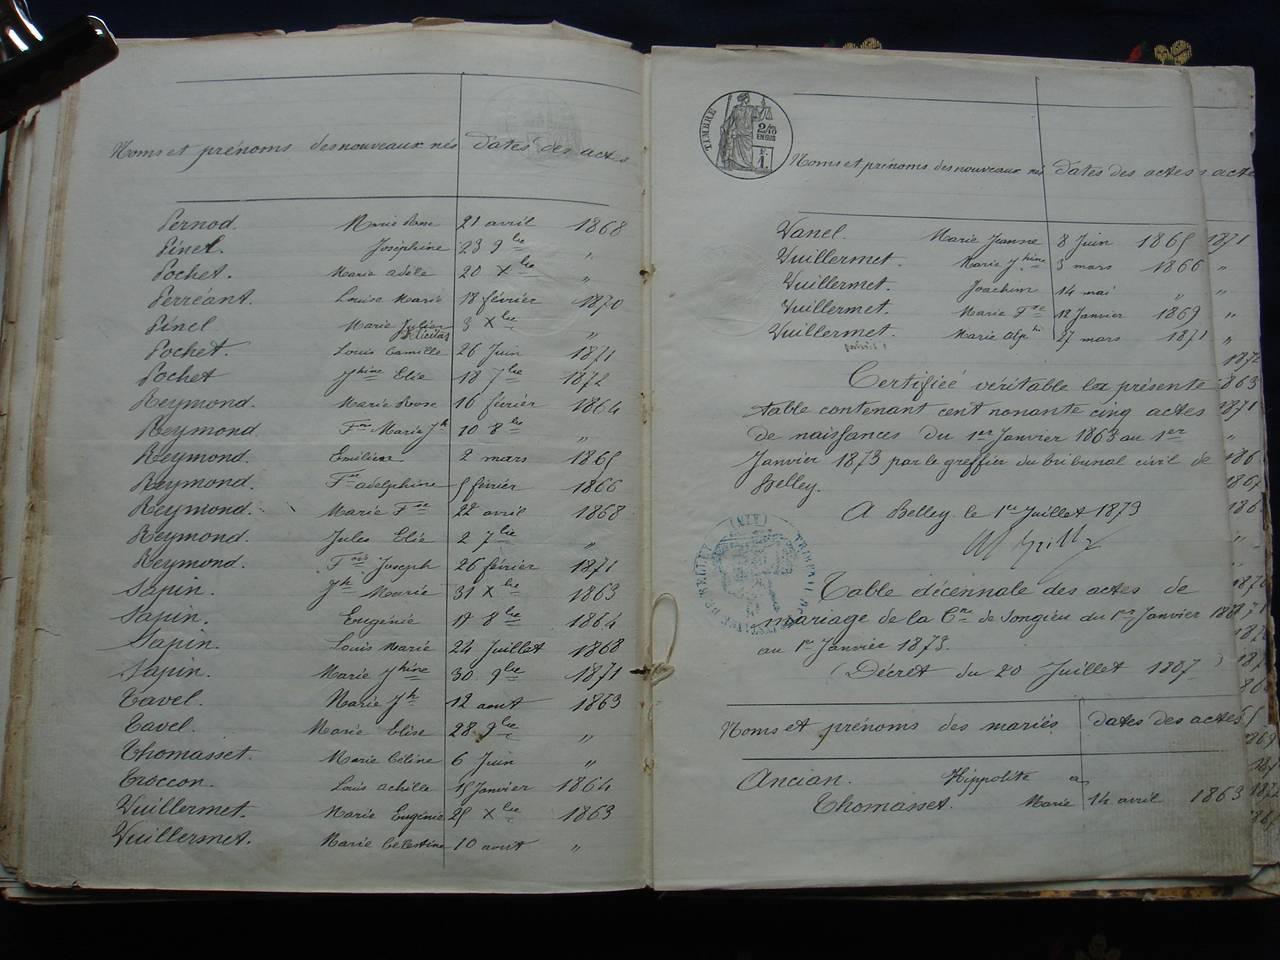 Noms et prénoms des nouveaux nés dates des actes
Pernod. Marie Rose 21 avril 1868
Pinel. Joséphine 23 9bre "
Pochet. Marie adèle 20 Xbre "
Perréant. Louise Marie 18 février 1870
Pinel Marie Julien 3 Xbre "
Nicolas
Pochet. Louis Camille 26 Juin 1871
Pochet Jhine Elie 18 7bre 1872
Reymond. Marie Rose 16 février 1864
Reymond Fois Marie Jh 10 8bre "
Reymond. Emilien 2 mars 1865
Reymond. Fse adelphine 5 février 1866
Reymond. Marie Fse 22 avril 1868
Reymond. Jules Elie 2 7bre "
Reymond. Fois Joseph 26 février 1871
Sapin. Jh Marie 31 Xbre 1863
Sapin. Eugénie 17 8bre 1864
Sapin. Louis Marie 24 Juillet 1868
Sapin. Marie Jhine 30 9bre 1871
Tavel. Marie Jh 12 aout 1863
Tavel. Marie Elise 28 9bre "
Thomasset. Marie Céline 6 Juin "
Troccon. Louis achille 15 Janvier 1864
Vuillermet. Marie Eugénie 25 Xbre 1863
Vuillermet. Marie Célestine 10 aout "
TIMBRE
2/10
EN SUS
1F.
Noms et prénoms des nouveaux nés dates des actes
Vanel. Marie Jeanne 8 Juin 1865
Vuillermet. Marie Jhine 3 mars 1866
Vuillermet. Joachim 14 mai "
Vuillermet. Marie Fse 12 Janvier 1869
Vuillermet. Marie Alp 27 mars 1871
Certifiée véritable la présente
table contenant cent nonante cinq actes
de naissances du 1er Janvier 1863 au 1er
Janvier 1873 par le greffier du tribunal civil de
Belley.
A Belley le 1er Juillet 1873
TRIBUNAL DE 1re INSTANCE DE BELLEY (AIN)
Table décennale des actes de
mariage de la Cne de Songieu du 1er Janvier
au 1er Janvier 1873.
(Décret du 20 Juillet 1807)
Noms et prénoms des mariés dates des actes
Ancian. Hippolite a
Thomasset. Marie 14 avril 1863